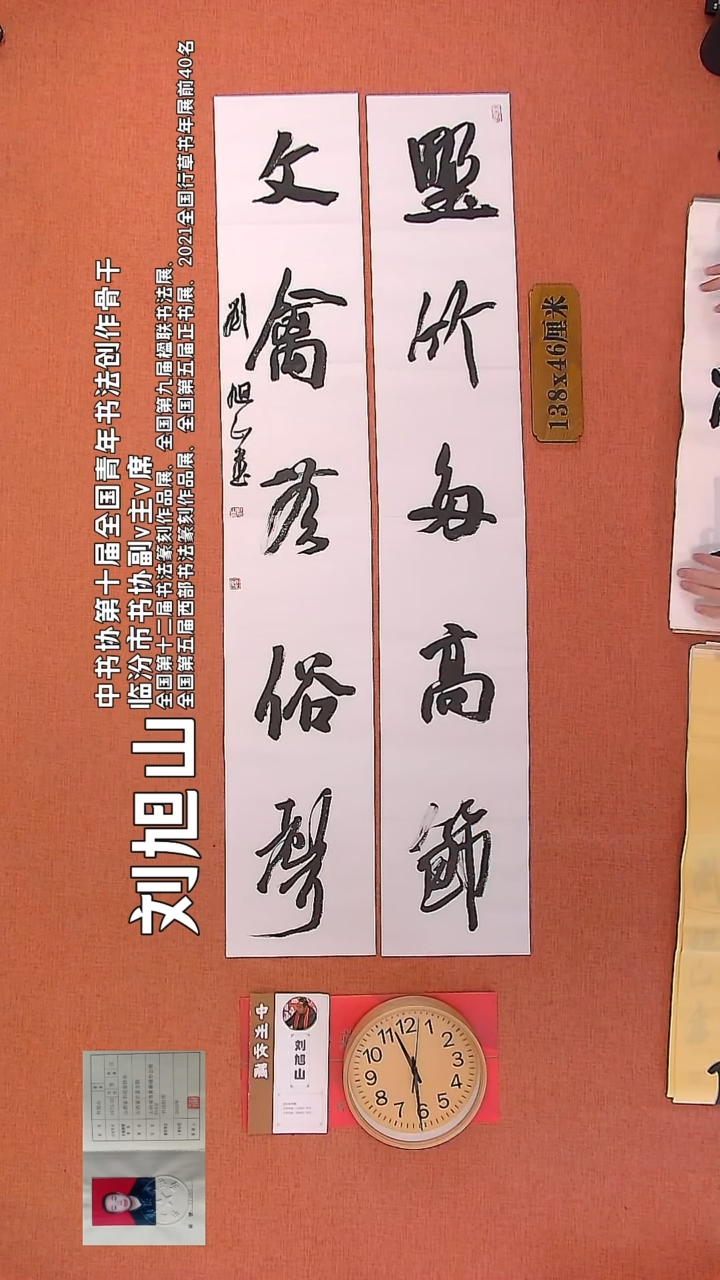 中书协第十届全国青年书法创作骨干
临汾市书协副v主v席
全国第十二届书法篆刻作品展、全国第九届楹联书法展、
全国第五届西部书法篆刻作品展、全国第五届正书展、2021全国行草书年展前40名
刘旭山
墅竹每高節
文禽俗聲
劉旭山書
138x46厘米
刘旭山
12 1 2 3 4 5 6 7 8 9 10 11